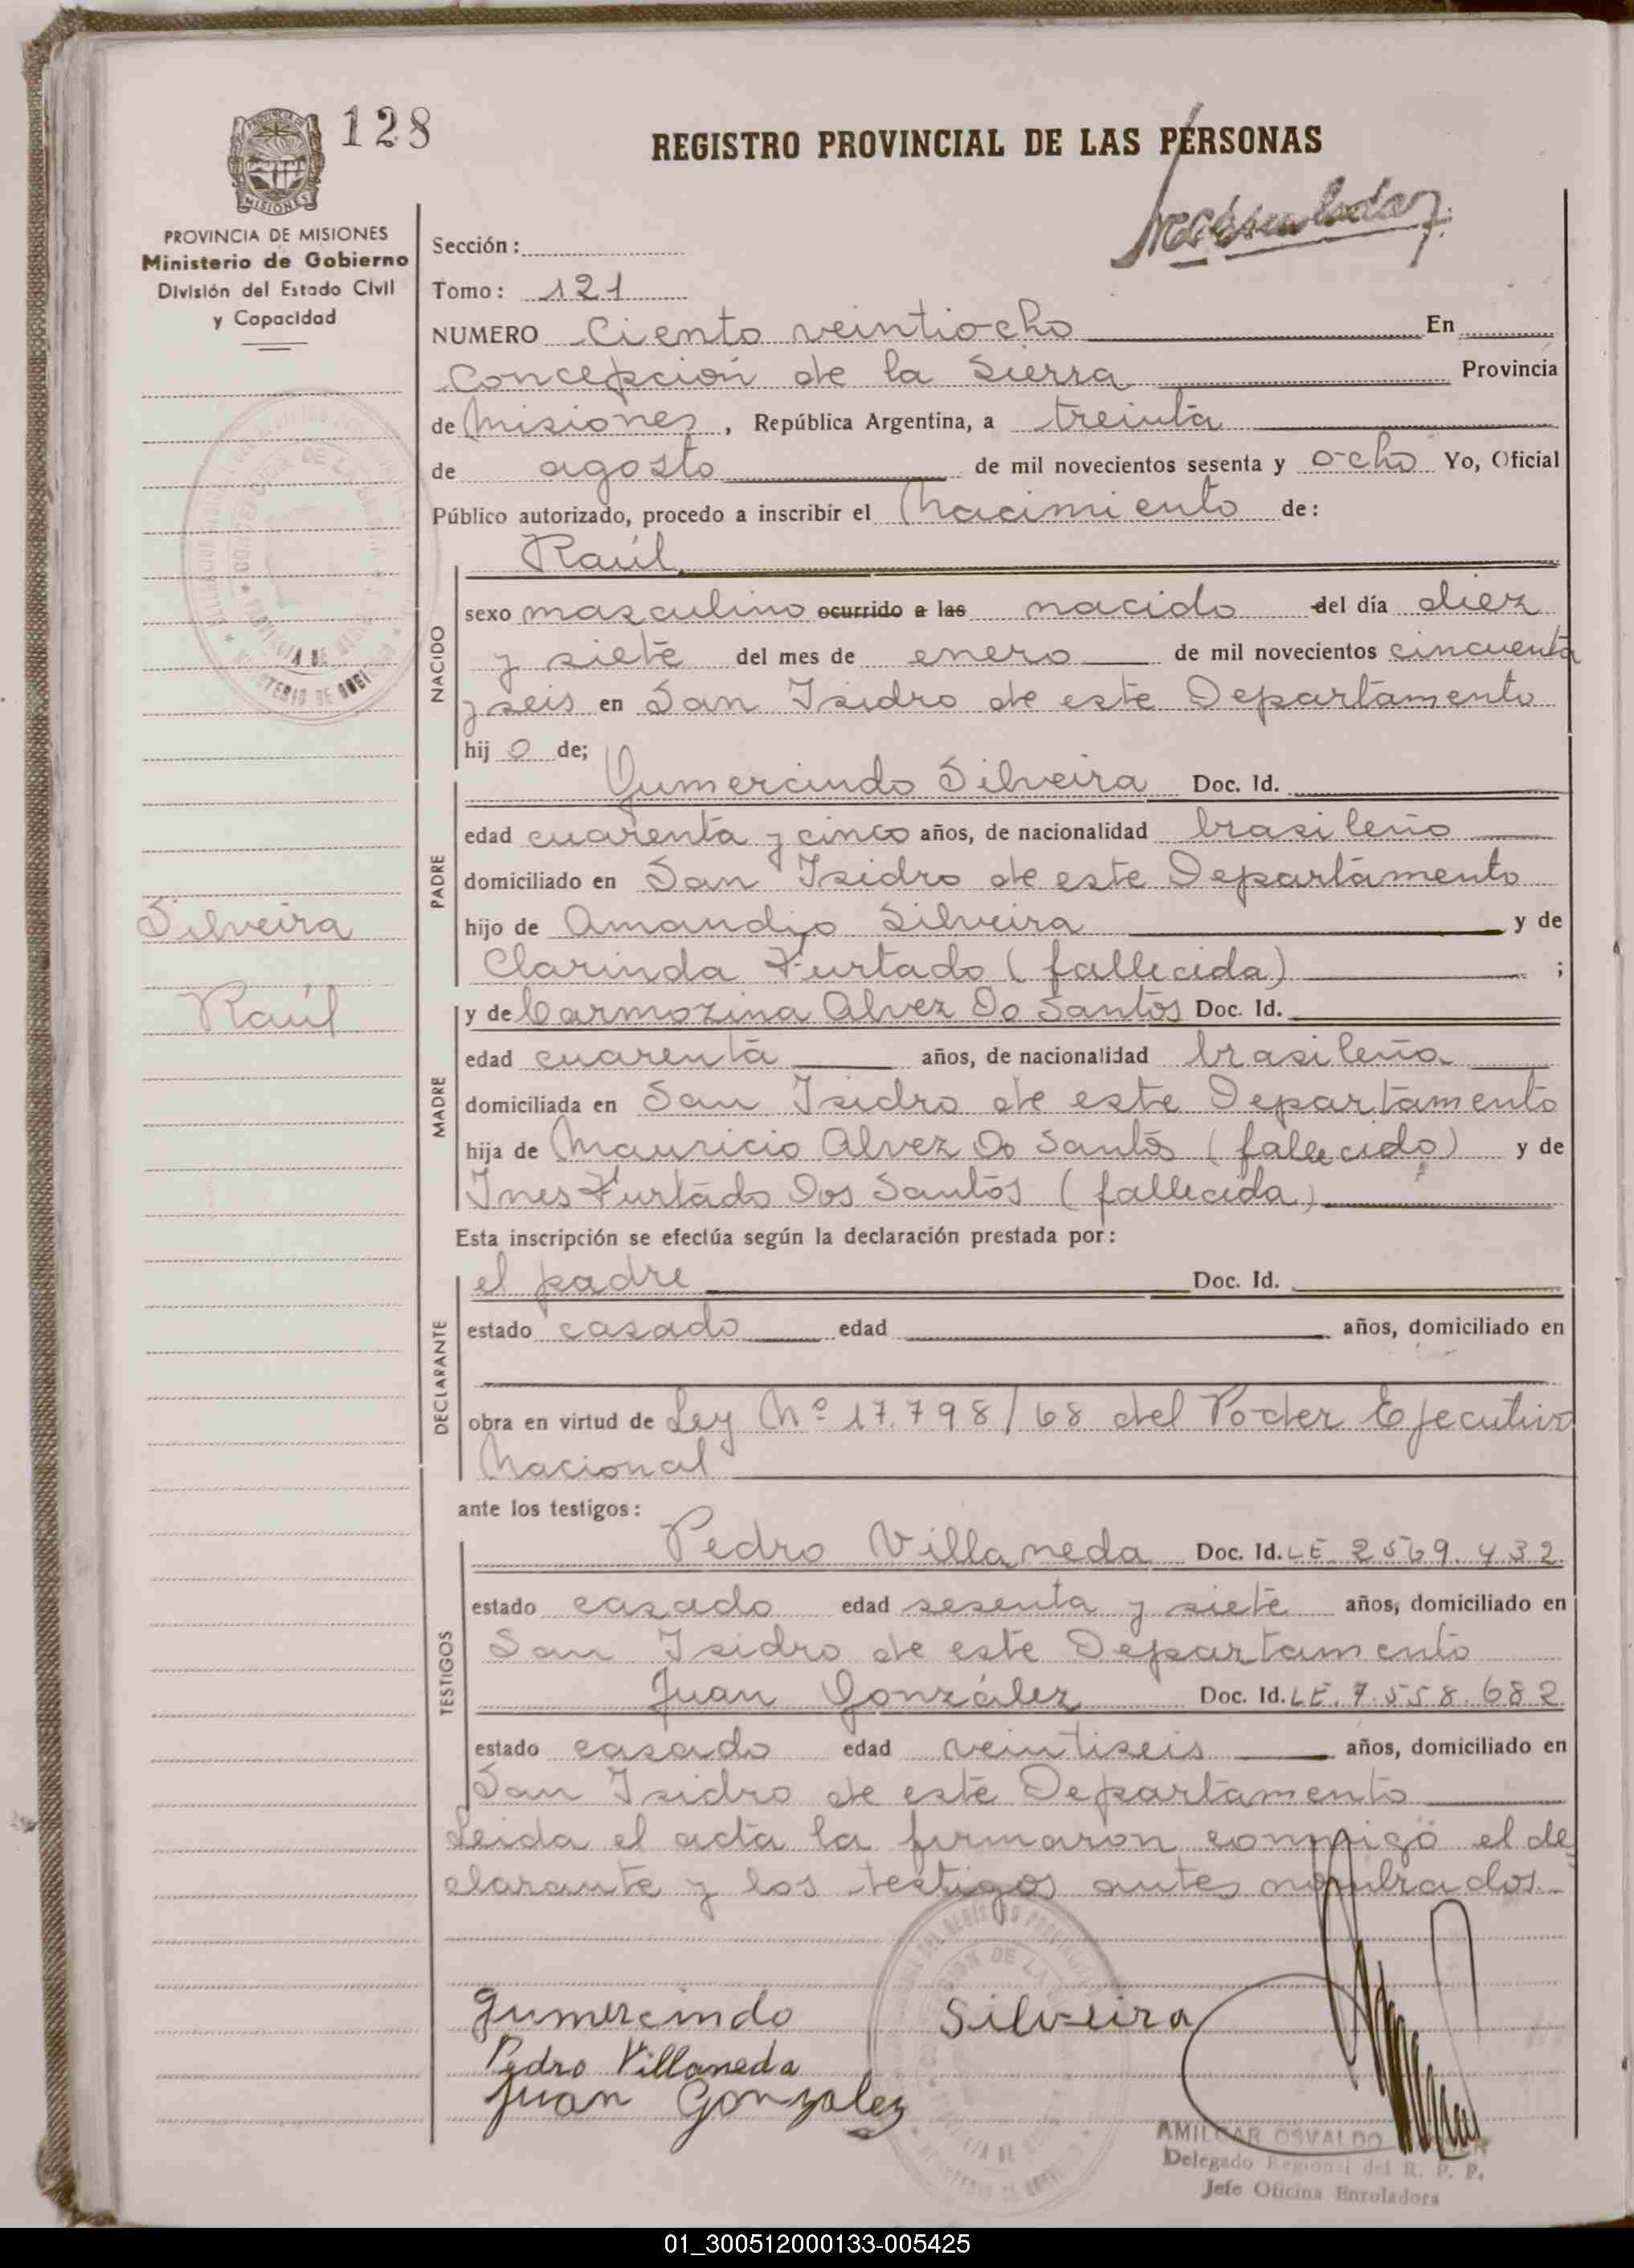 128
REGISTRO PROVINCIAL DE LAS PERSONAS
MISIONES
PROVINCIA DE MISIONES
Ministerio de Gobierno
División del Estado Civil
y Capacidad
Sección:
Tomo: 121
NUMERO Ciento veintiocho En
Concepción de la Sierra Provincia
de Misiones, República Argentina, a treinta
de agosto de mil novecientos sesenta y ocho Yo, Oficial
Público autorizado, procedo a inscribir el Nacimiento de:
Raúl
NACIDO
sexo masculino ocurrido a las nacido del día diez
y siete del mes de enero de mil novecientos cincuenta
y seis en San Isidro de este Departamento
hij o de;
PADRE
Gumercindo Silveira Doc. Id.
edad cuarenta y cinco años, de nacionalidad brasileño
domiciliado en San Isidro de este Departamento
Silveira
hijo de Amandio Silveira y de
Clarinda Furtado (fallecida) ;
Raúl
MADRE
y de Carmozina Alvez Do Santos Doc. Id.
edad cuarenta años, de nacionalidad brasileña
domiciliada en San Isidro de este Departamento
hija de Mauricio Alvez Do Santos (fallecido) y de
Ines Furtado Dos Santos (fallecida)
Esta inscripción se efectúa según la declaración prestada por:
DECLARANTE
el padre Doc. Id.
estado casado edad años, domiciliado en
obra en virtud de Ley Nº 17.798/68 del Poder Ejecutivo
Nacional
ante los testigos:
TESTIGOS
Pedro Villaneda Doc. Id. LE 2569.432
estado casado edad sesenta y siete años, domiciliado en
San Isidro de este Departamento
Juan González Doc. Id. LE. 7.558.682
estado casado edad veintiseis años, domiciliado en
San Isidro de este Departamento
Leida el acta la firmaron conmigo el de
clarante y los testigos antes nombrados.
Gumercindo Silveira
Pedro Villaneda
Juan Gonzalez
AMILCAR OSVALDO
Delegado Regional del R. P. P.
Jefe Oficina Enroladora
01_300512000133-005425